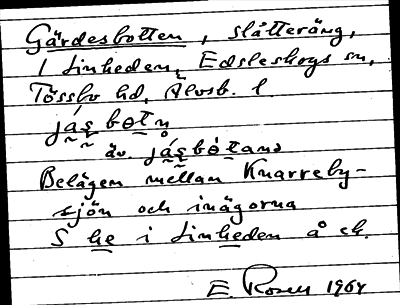 Gärdesbotten, slåtteräng,
1 Linheden, Edsleskogs sn,
Tössbo hd, Älvsb. l
Belägen mellan Knarreby-
sjön och inägorna
S he i Linheden å ek.
E. Rosell 1964